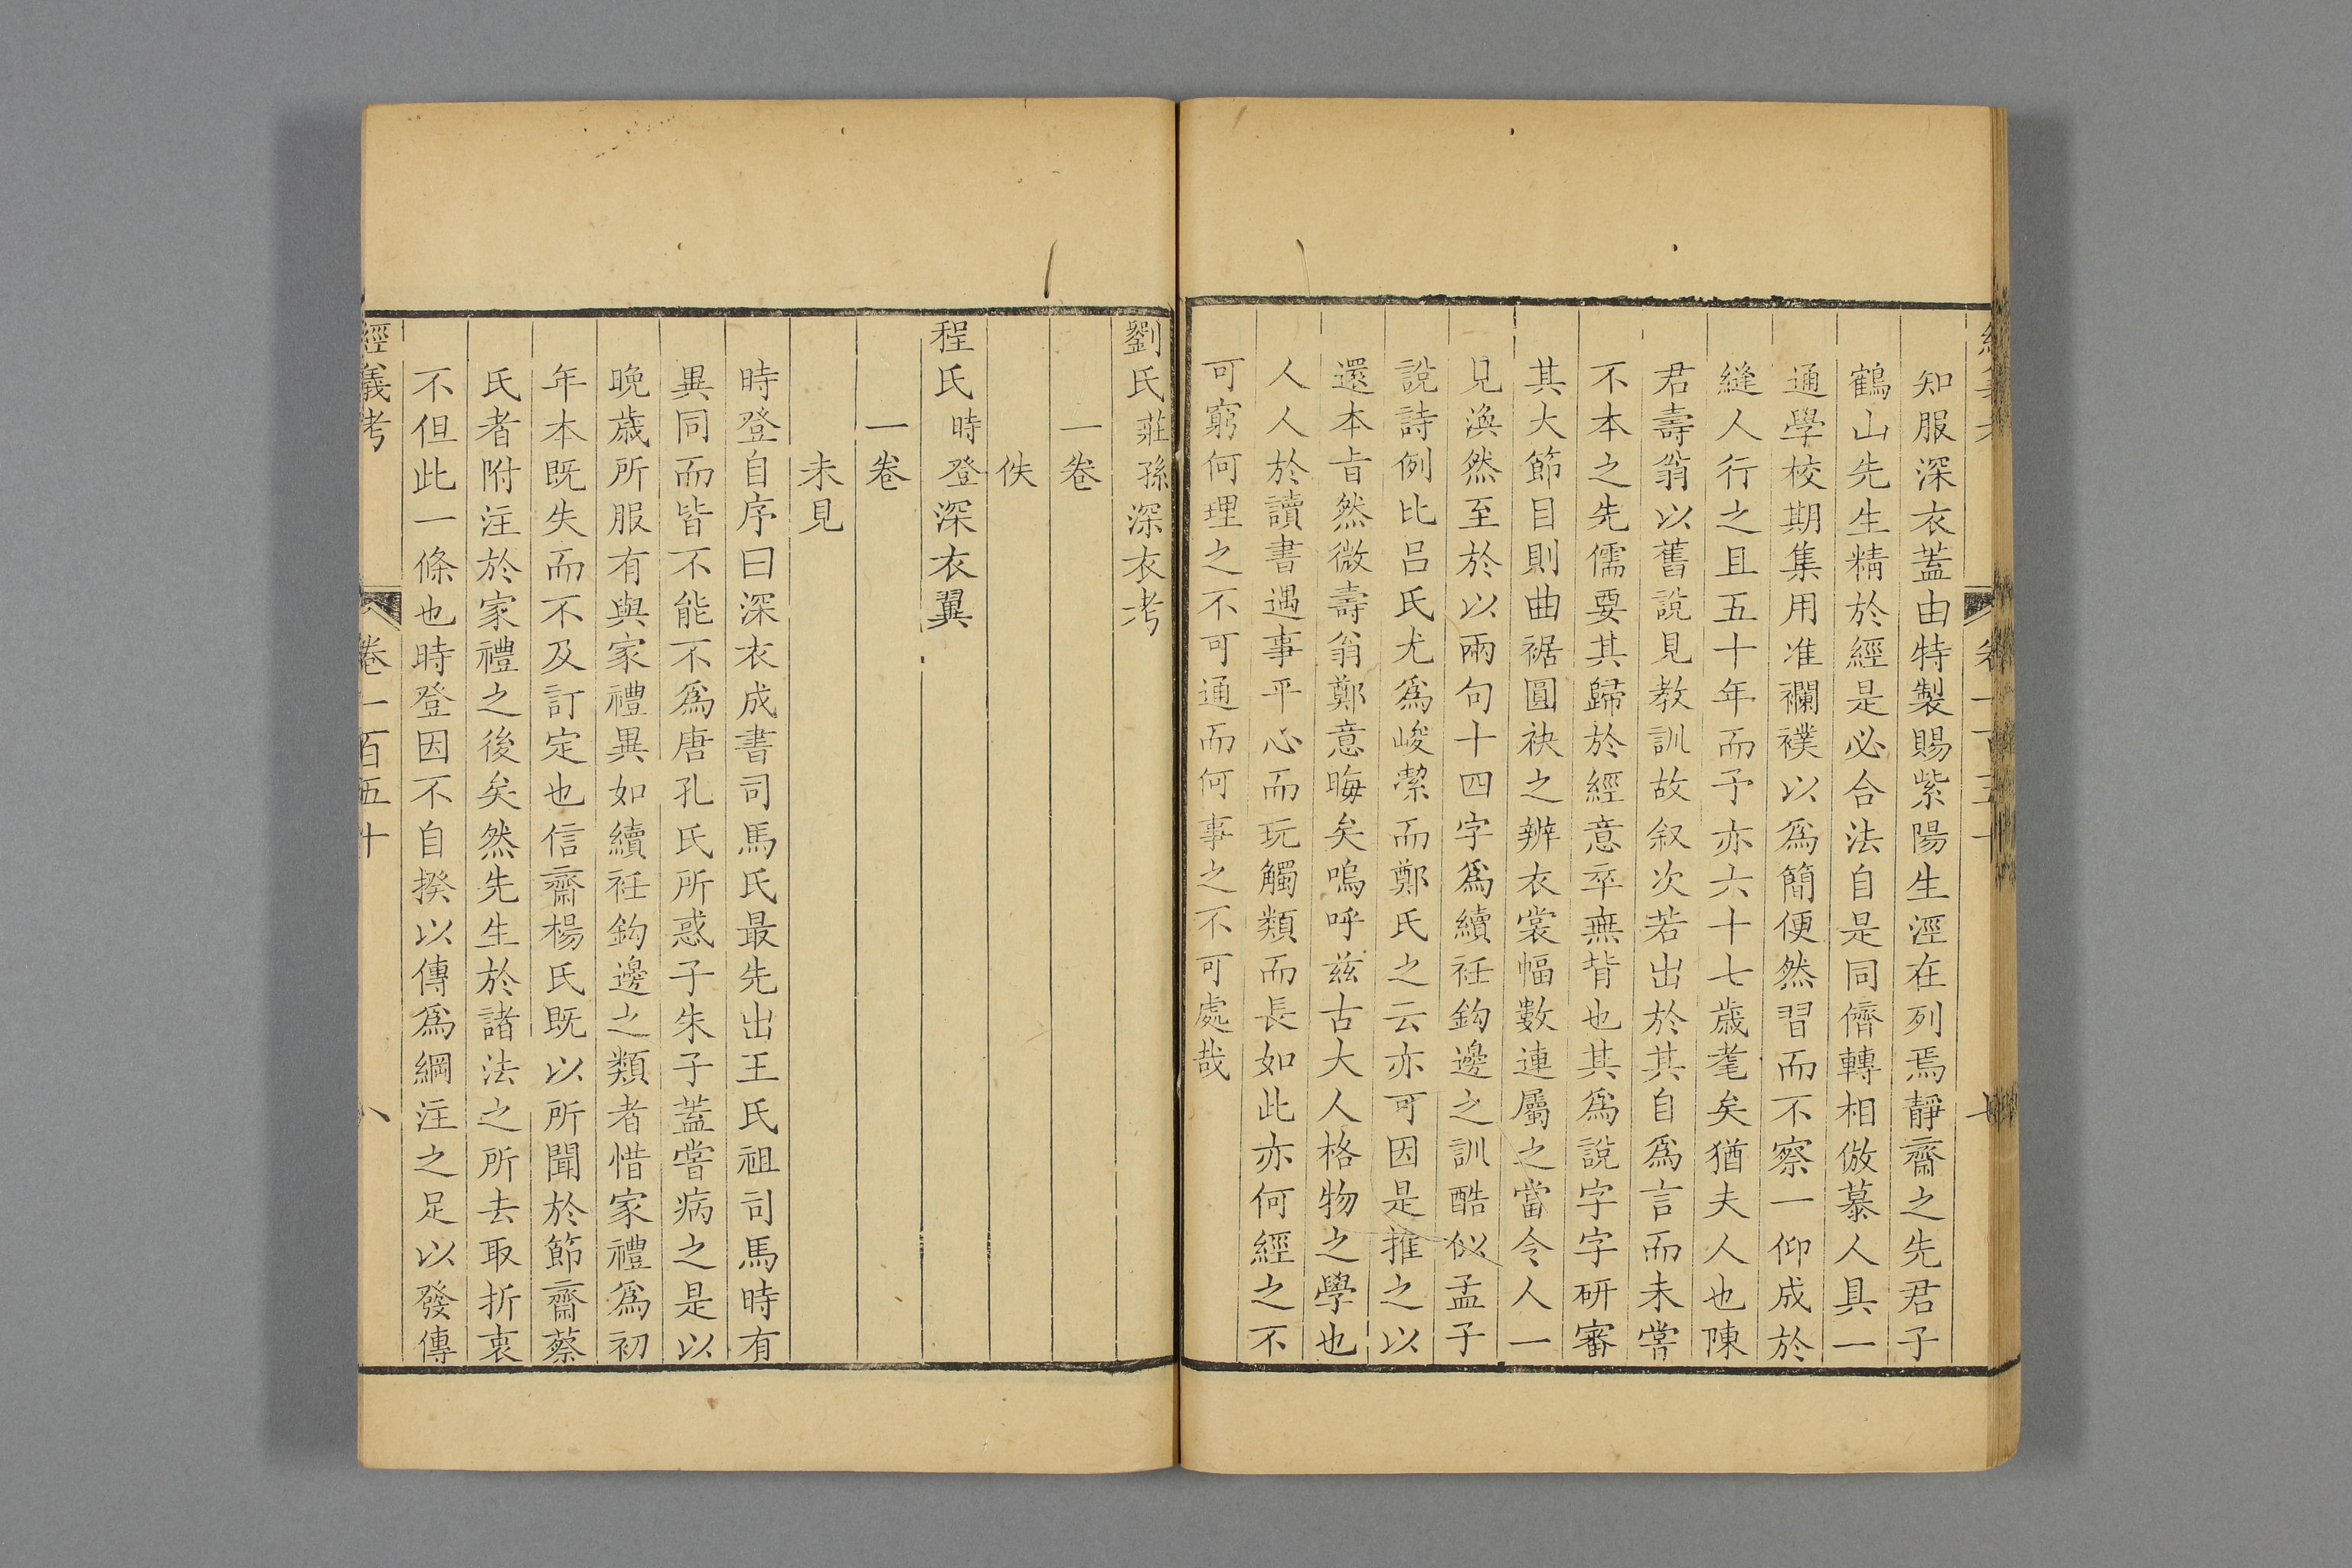 知服深衣蓋由特製賜紫陽生涇在列焉靜齋之先君子
鶴山先生精於經是必合法自是同儕轉相倣慕人具一
通學校期集用准襴襆以爲簡便然習而不察一仰成於
縫人行之且五十年而予亦六十七歲耄矣猶夫人也陳
君壽翁以舊說見教訓故叙次若出於其自爲言而未嘗
不本之先儒要其歸於經意卒無背也其爲說字字研審
其大節目則曲裾圓袂之辨衣裳幅數連屬之當令人一
見渙然至於以兩句十四字爲續衽鈎邊之訓酷似孟子
說詩例比呂氏尤爲峻潔而鄭氏之云亦可因是推之以
還本旨然微壽翁鄭意晦矣嗚呼兹古大人格物之學也
人人於讀書遇事平心而玩觸類而長如此亦何經之不
可窮何理之不可通而何事之不可處哉
劉氏莊孫深衣考
一卷
佚
程氏時登深衣翼
一卷
未見
時登自序曰深衣成書司馬氏最先出王氏祖司馬時有
異同而皆不能不爲唐孔氏所惑子朱子蓋嘗病之是以
晚歲所服有與家禮異如續衽鈎邊之類者惜家禮爲初
年本既失而不及訂定也信齋楊氏既以所聞於節齋蔡
氏者附注於家禮之後矣然先生於諸法之所去取折衷
不但此一條也時登因不自揆以傳爲綱注之足以發傳
經義考 卷一百五十 八